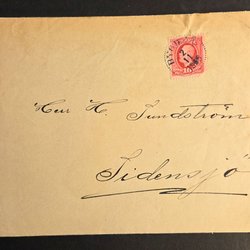 Herr H. Sundström
Sidensjö